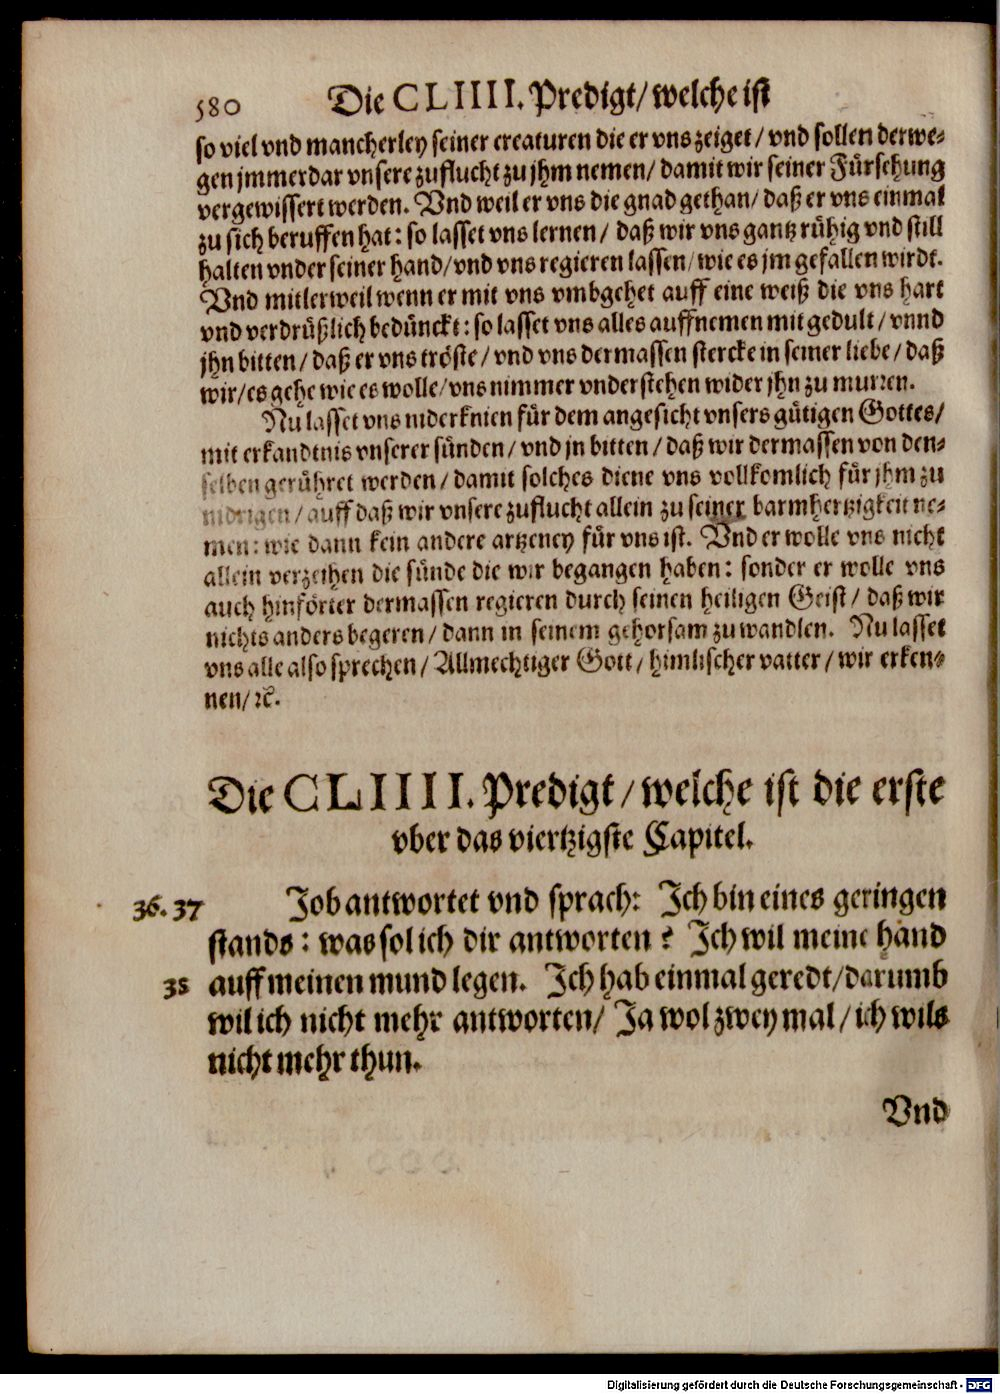 580 Die CLIIII. Predigt/ welche ist
so viel vnd mancherley seiner creaturen die er vns zeiget/ vnd sollen derwe-
gen jmmerdar vnsere zuflucht zu jhm nemen/ damit wir seiner Fürsehung
vergewissert werden. Vnd weil er vns die gnad gethan/ daß er vns einmal
zu sich beruffen hat: so lasset vns lernen/ daß wir vns gantz rühig vnd still
halten vnder seiner hand/ vnd vns regieren lassen/ wie es jm gefallen wirdt.
Vnd mitlerweil wenn er mit vns vmbgehet auff eine weiß die vns hart
vnd verdrüßlich bedünckt: so lasset vns alles auffnemen mit gedult/ vnnd
jhn bitten/ daß er vns tröste/ vnd vns dermassen stercke in seiner liebe/ daß
wir/ es gehe wie es wolle/ vns nimmer vnderstehen wider jhn zu murren.
Nu lasset vns niderknien für dem angesicht vnsers gütigen Gottes/
mit erkandtnis vnserer sünden/ vnd jn bitten/ daß wir dermassen von den-
selben gerühret werden/ damit solches diene vns vollkomlich für jhm zu
nidrigen/ auff daß wir vnsere zuflucht allein zu seiner barmhertzigkeit ne-
men: wie dann kein andere artzeney für vns ist. Vnd er wolle vns nicht
allein verzeihen die sünde die wir begangen haben: sonder er wolle vns
auch hinförter dermassen regieren durch seinen heiligen Geist/ daß wir
nichts anders begeren/ dann in seinem gehorsam zu wandlen. Nu lasset
vns alle also sprechen/ Allmechtiger Gott/ himlischer vatter/ wir erken-
nen/ ꝛc.
Die CLIIII. Predigt/ welche ist die erste
vber das viertzigste Capitel.
36. 37 Job antwortet vnd sprach: Ich bin eines geringen
stands: was sol ich dir antworten? Ich wil meine hand
38 auff meinen mund legen. Ich hab einmal geredt/ darumb
wil ich nicht mehr antworten/ Ja wol zwey mal/ ich wils
nicht mehr thun.
Vnd
Digitalisierung gefördert durch die Deutsche Forschungsgemeinschaft - DFG